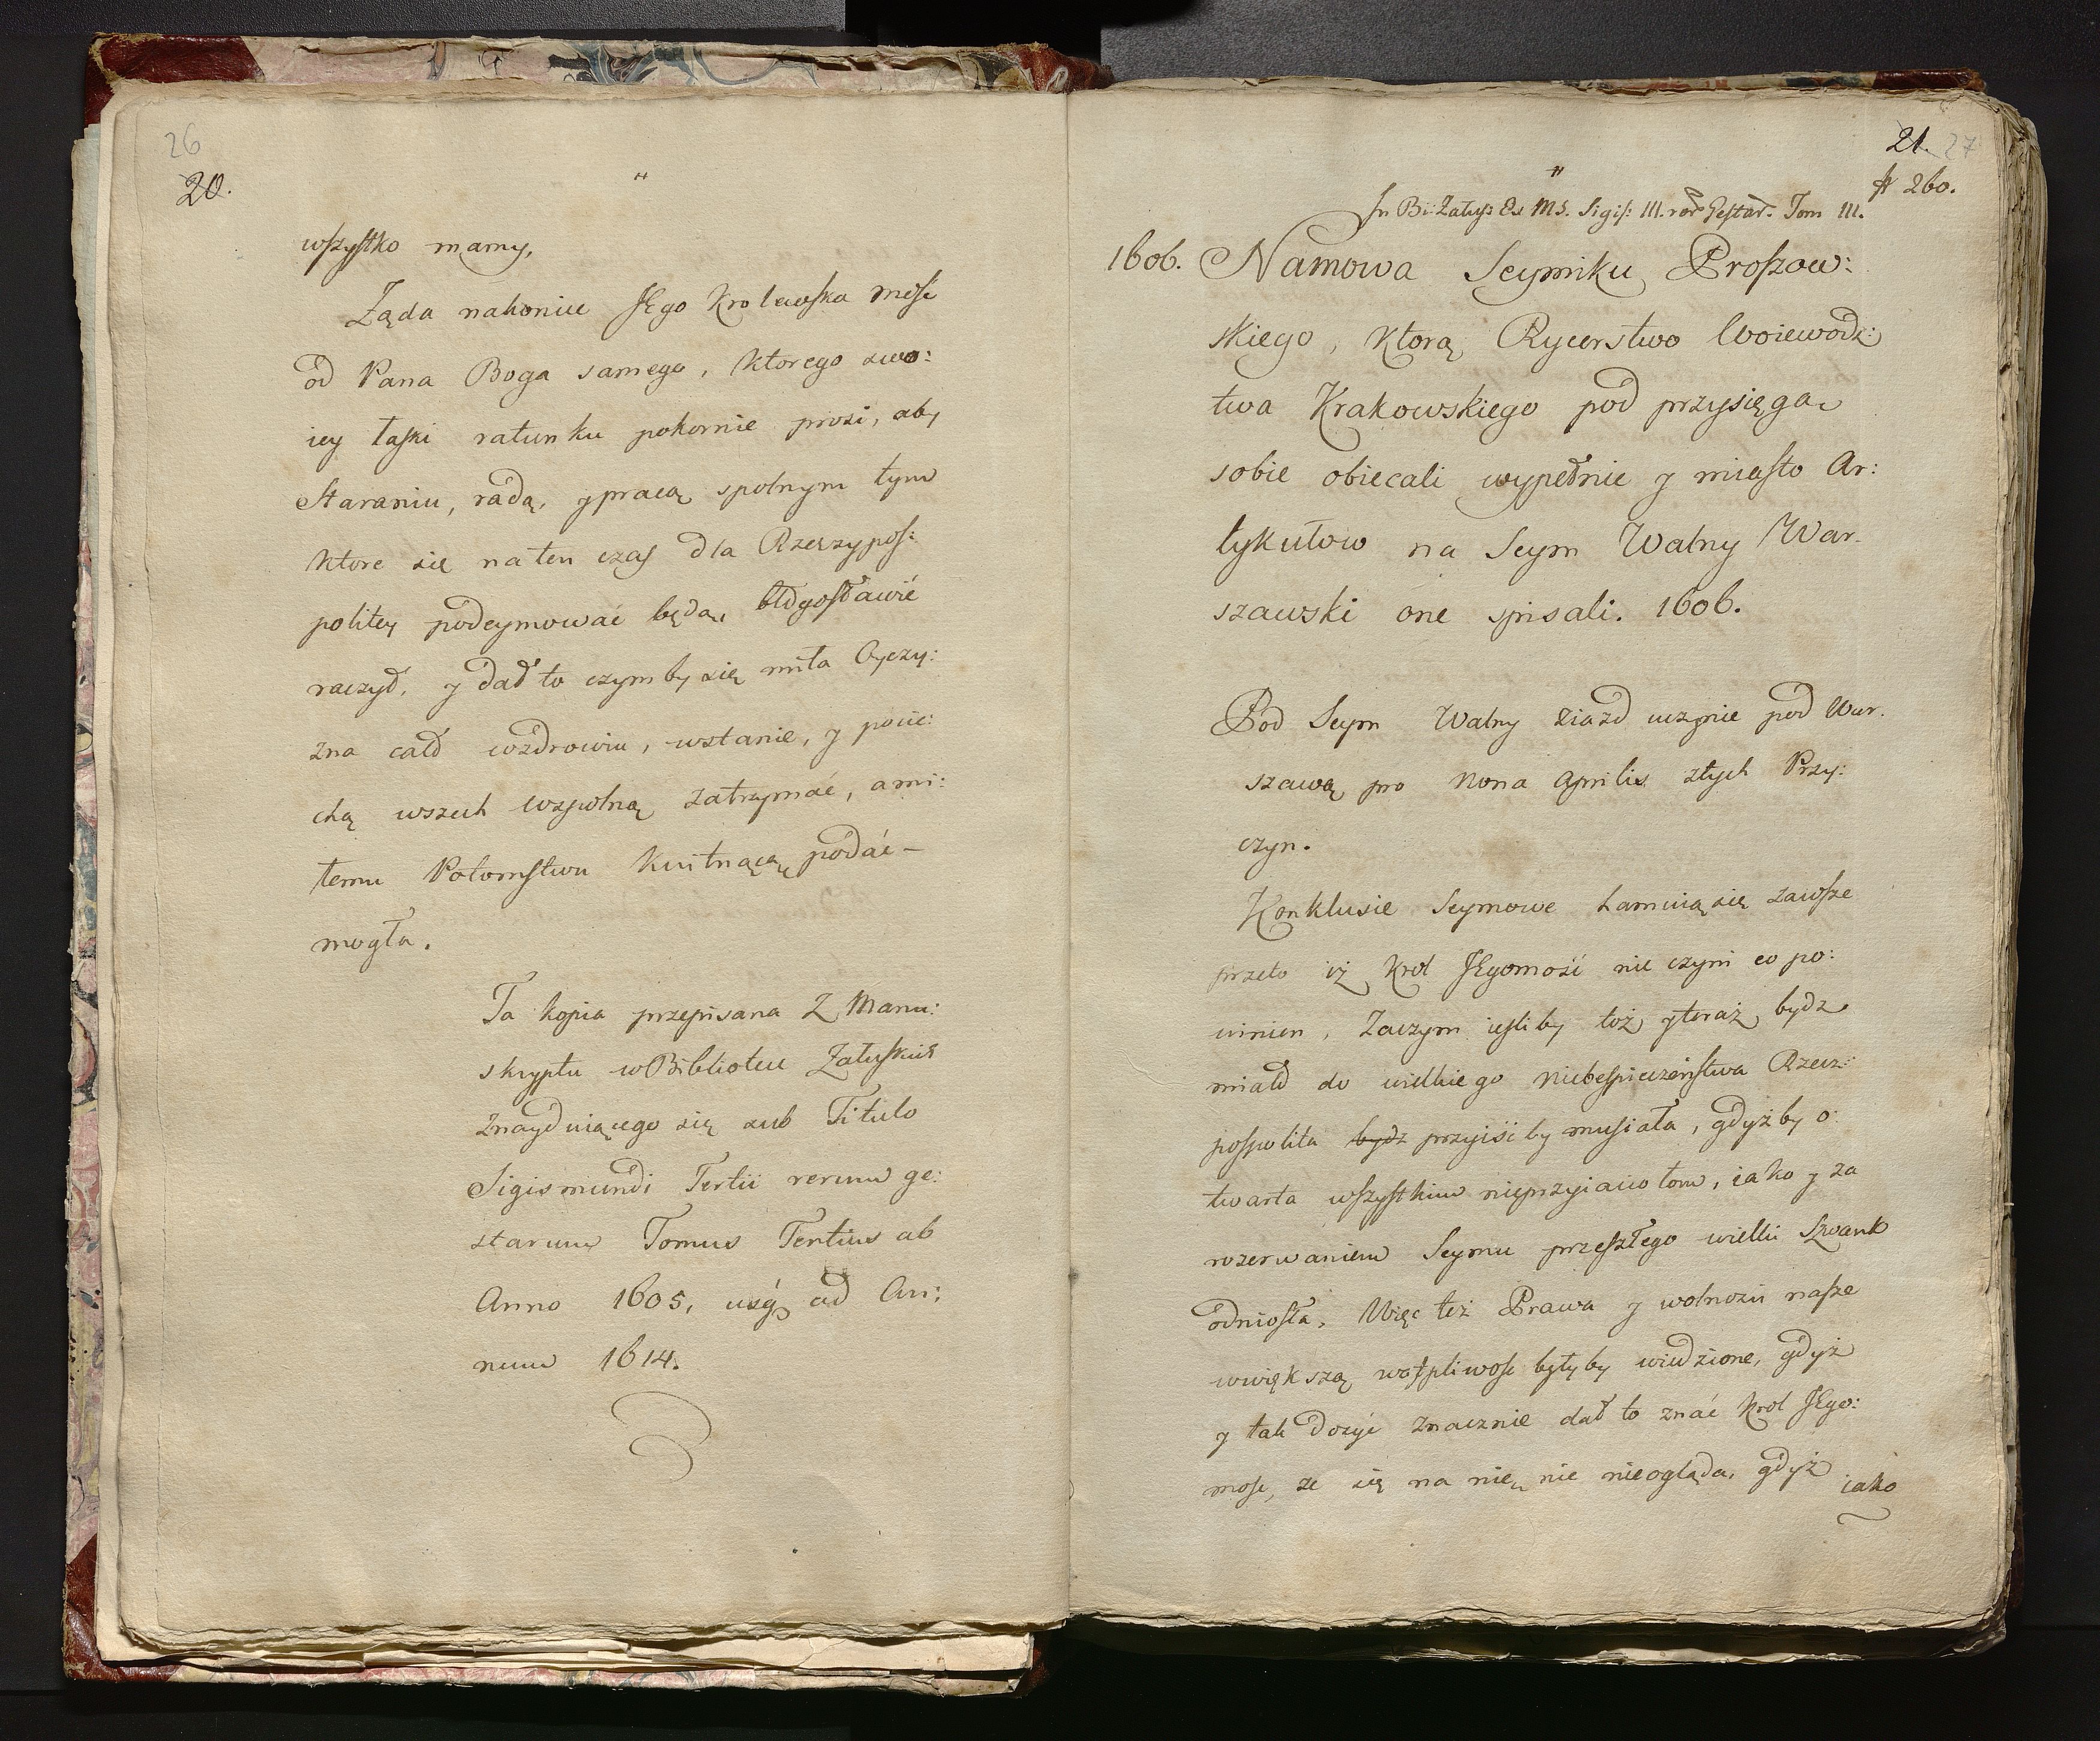 26
20.
"
wszystko mamy,
Ząda nakoniec JEgo Krolewska Mość
od Pana Boga samego, Ktorego swo:
iey łaski ratunku pokornie prosi, aby
Staraniu, radą, y pracą spolnym tym
Ktore się na ten czas dla Rzeczypos:
politey podeymować będą, błogosławić
raczył, y dał to czym by się miła Oyczy:
zna cało w zdrowiu, w stanie, y pocie:
chą wszech wzpolną zatrzymać, a mi:
temu Potomstwu Kwitnącą podać –
mogła.
Ta kopia przepisana z Manu:
skryptu w Bibliotece Załuskich
znayduiącego się sub Titulo
Sigismundi Tertii rerum ge:
starum Tomus Tertius ab
Anno 1605, usq ad An:
num 1614.
21. 27
260.
"
In Bi: Załus: Ex MS. Sigis: III. rer Gestar. Tom III.
1606. Namowa Seymiku Proszow:
skiego, Ktorą Rycerstwo Woiewodz:
twa Krakowskiego pod przysięgą
sobie obiecali wypełnie y miasto Ar:
tykułow na Seym Walny War-
szawski one spisali. 1606.
Pod Seym Walny ziazd uczynic pod War-
szawą pro Nona Aprilis z tych Przy:
czyn.
Konklusie Seymowe tamuią się zawsze
przeto iż Krol JEgomość nie czyni co po:
winien, Zaczym iesliby toż y teraz bydz
miało do wielkiego niebespieczeństwa Rzecz:
pospolita bydz przyiść by musiała, gdyż by o:
twarta wszystkim nieprzyiaciołom, iako y za
rozerwaniem Seymu przeszłego wielki Szwank
odniosła, Więc też Prawa y wolności nasze
w większą wątpliwosc byłyby wiedzione, gdyż
y tak dosyć znacznie dał to znać Krol JEgo:
mosc, ze się na nię nie nieogląda, gdyż
iako